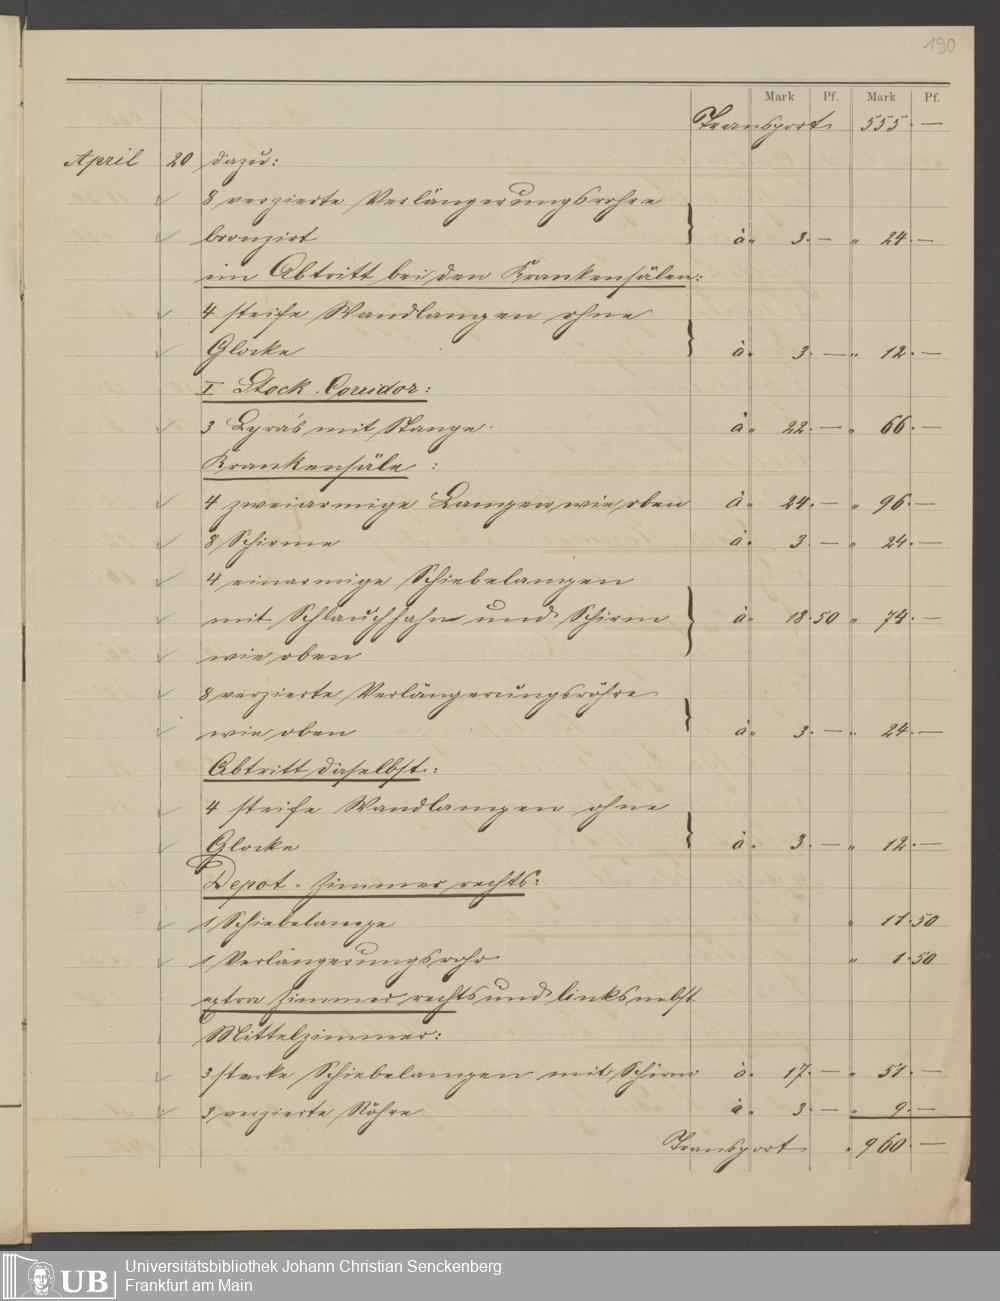 190
Mark Pf. Mark Pf.
Transport 555. —
April 20 dazu:
8 verzierte Verlängerungsrohre
bronzirt à " 3. — " 24. —
im Abtritt bei den Krankensälen:
4 steife Wandlampen ohne
Glocke à " 3. — " 12. —
I Stock. Corridor:
3 Lyra's mit Stange. à " 22. — " 66. —
Krankensäle :
4 zweiarmige Lampen wie oben à " 24. — " 96. —
8 Schirme à " 3. — " 24. —
4 einarmige Schiebelampen
mit Schlauchhahn und Schirm à " 18. 50 " 74. —
wie oben
8 verzierte Verlängerungsröhre
wie oben à " 3. — " 24. —
Abtritt daselbst:
4 steife Wandlampen ohne
Glocke à " 3. — " 12. —
Depot-Zimmer rechts:
1 Schiebelampe " 11. 50
1 Verlängerungsrohr " 1. 50
extra Zimmer rechts und links nebst
Mittelzimmer:
3 starke Schiebelampen mit Schirm à " 17. — " 51. —
3 verzierte Röhre à " 3. — " 9. —
Transport " 960. —
UB Universitätsbibliothek Johann Christian Senckenberg
Frankfurt am Main